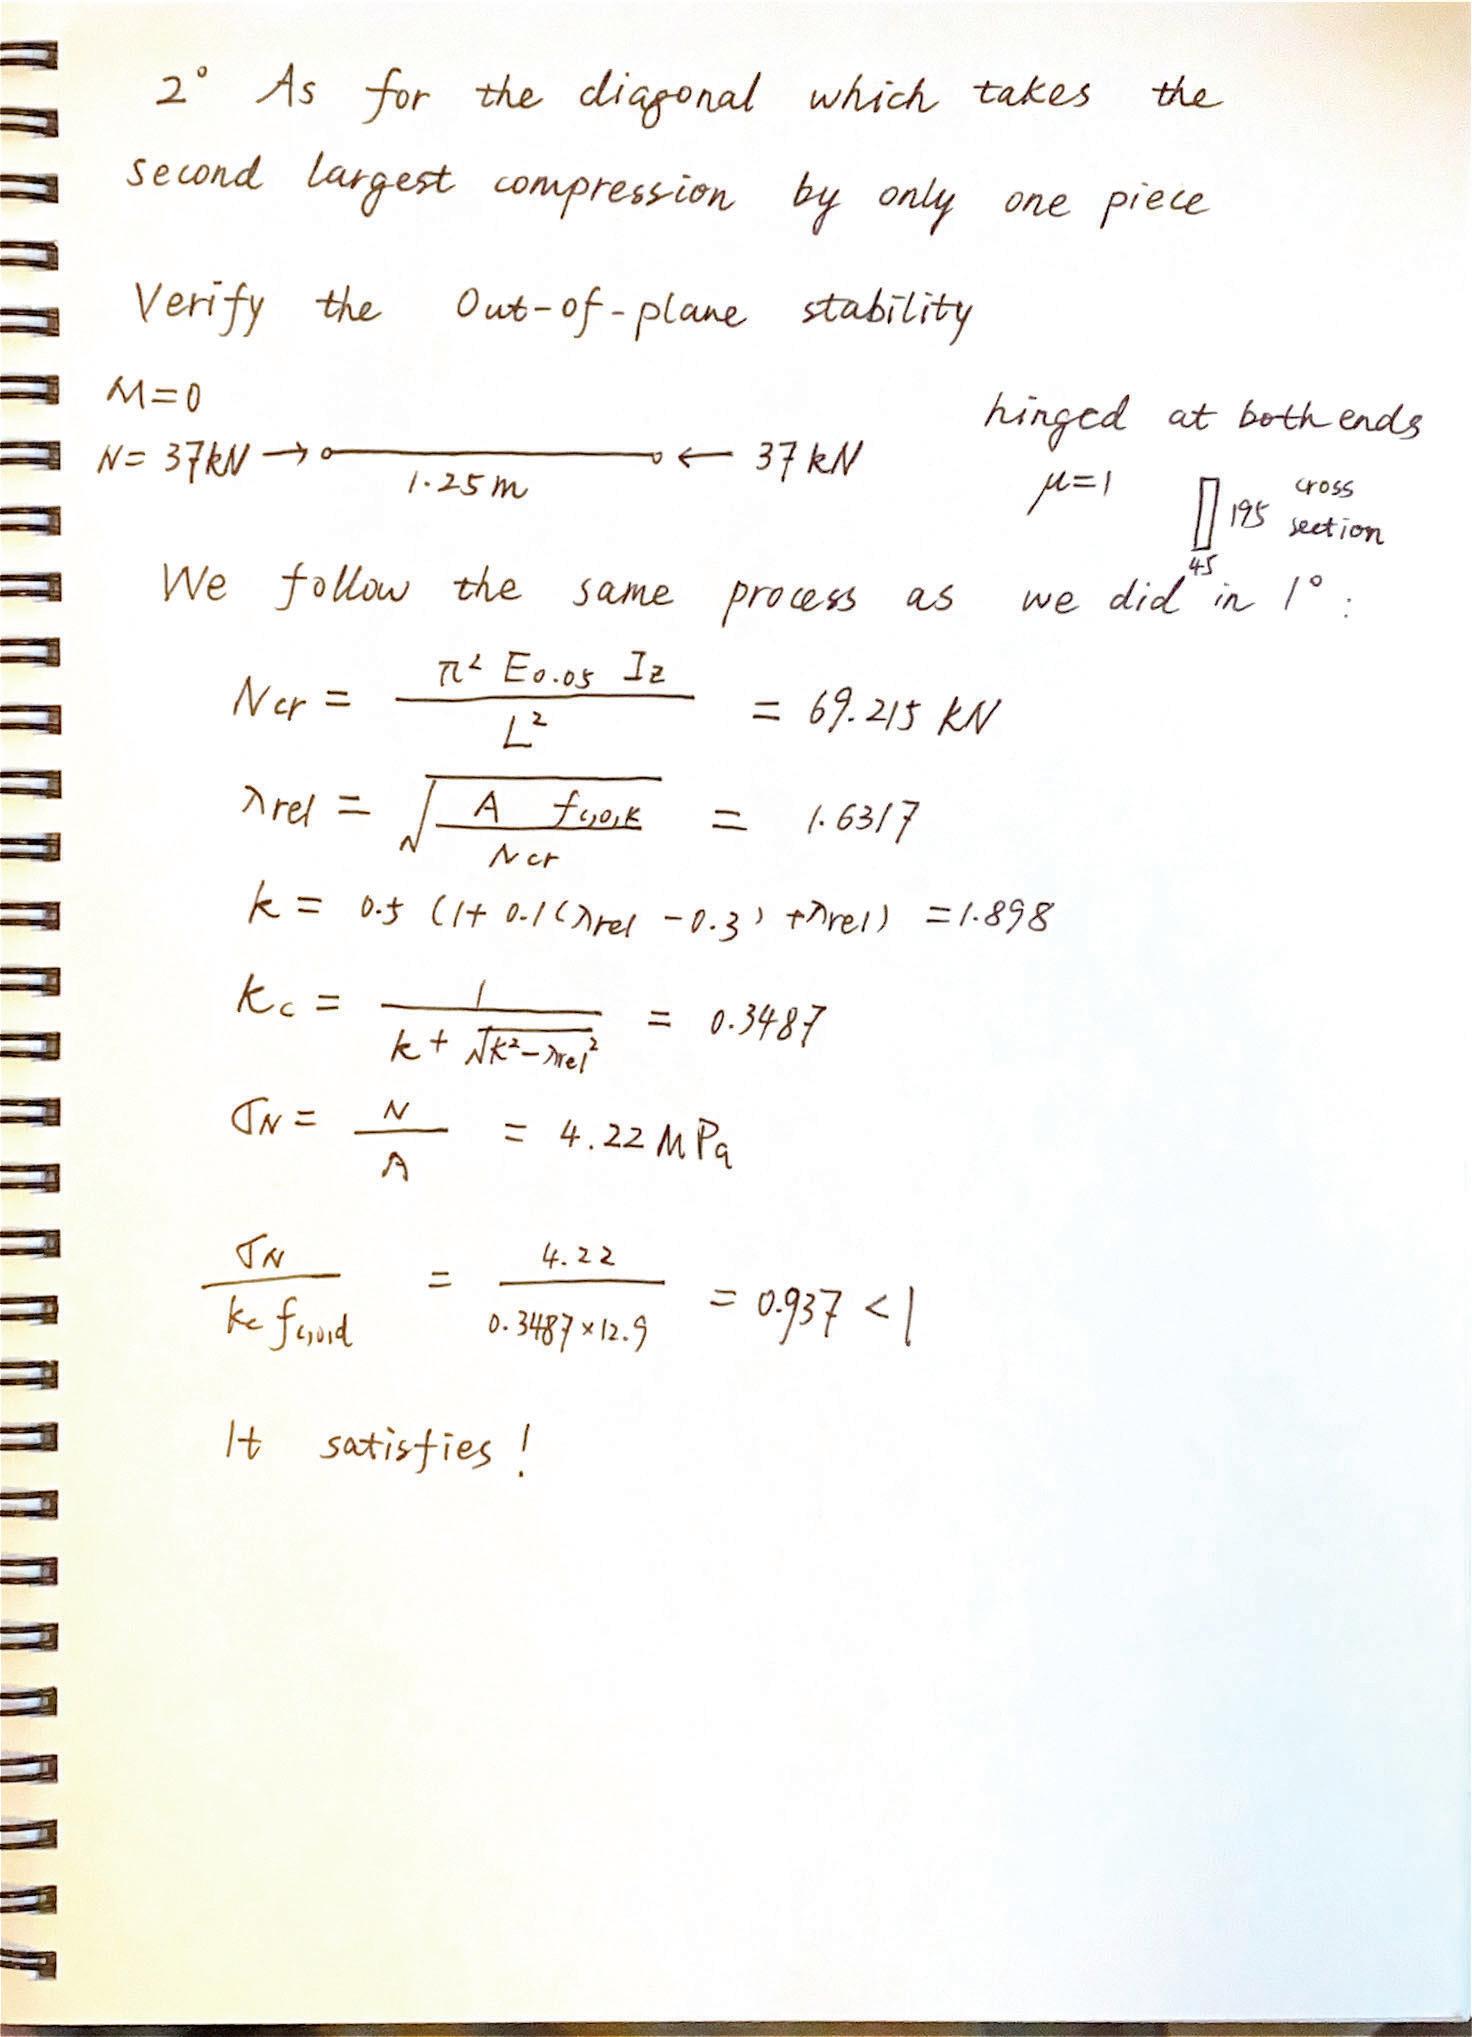 2° As for the diagonal which takes the
second largest compression by only one piece
Verify the Out-of-plane stability
M=0
N= 37kN → ← 37 kN
1.25m
hinged at both ends
μ=1
195 cross section
45
We follow the same process as we did in 1° :
Ncr = π² E0.05 Iz / L² = 69.215 kN
λrel = √(A fc,0,k / Ncr) = 1.6317
k = 0.5 (1+ 0.1(λrel -0.3) +λrel) =1.898
kc = 1 / (k + √(k²-λrel²)) = 0.3487
σN = N / A = 4.22 MPa
σN / (kc fc,0,d) = 4.22 / (0.3487×12.9) = 0.937 < 1
It satisfies!